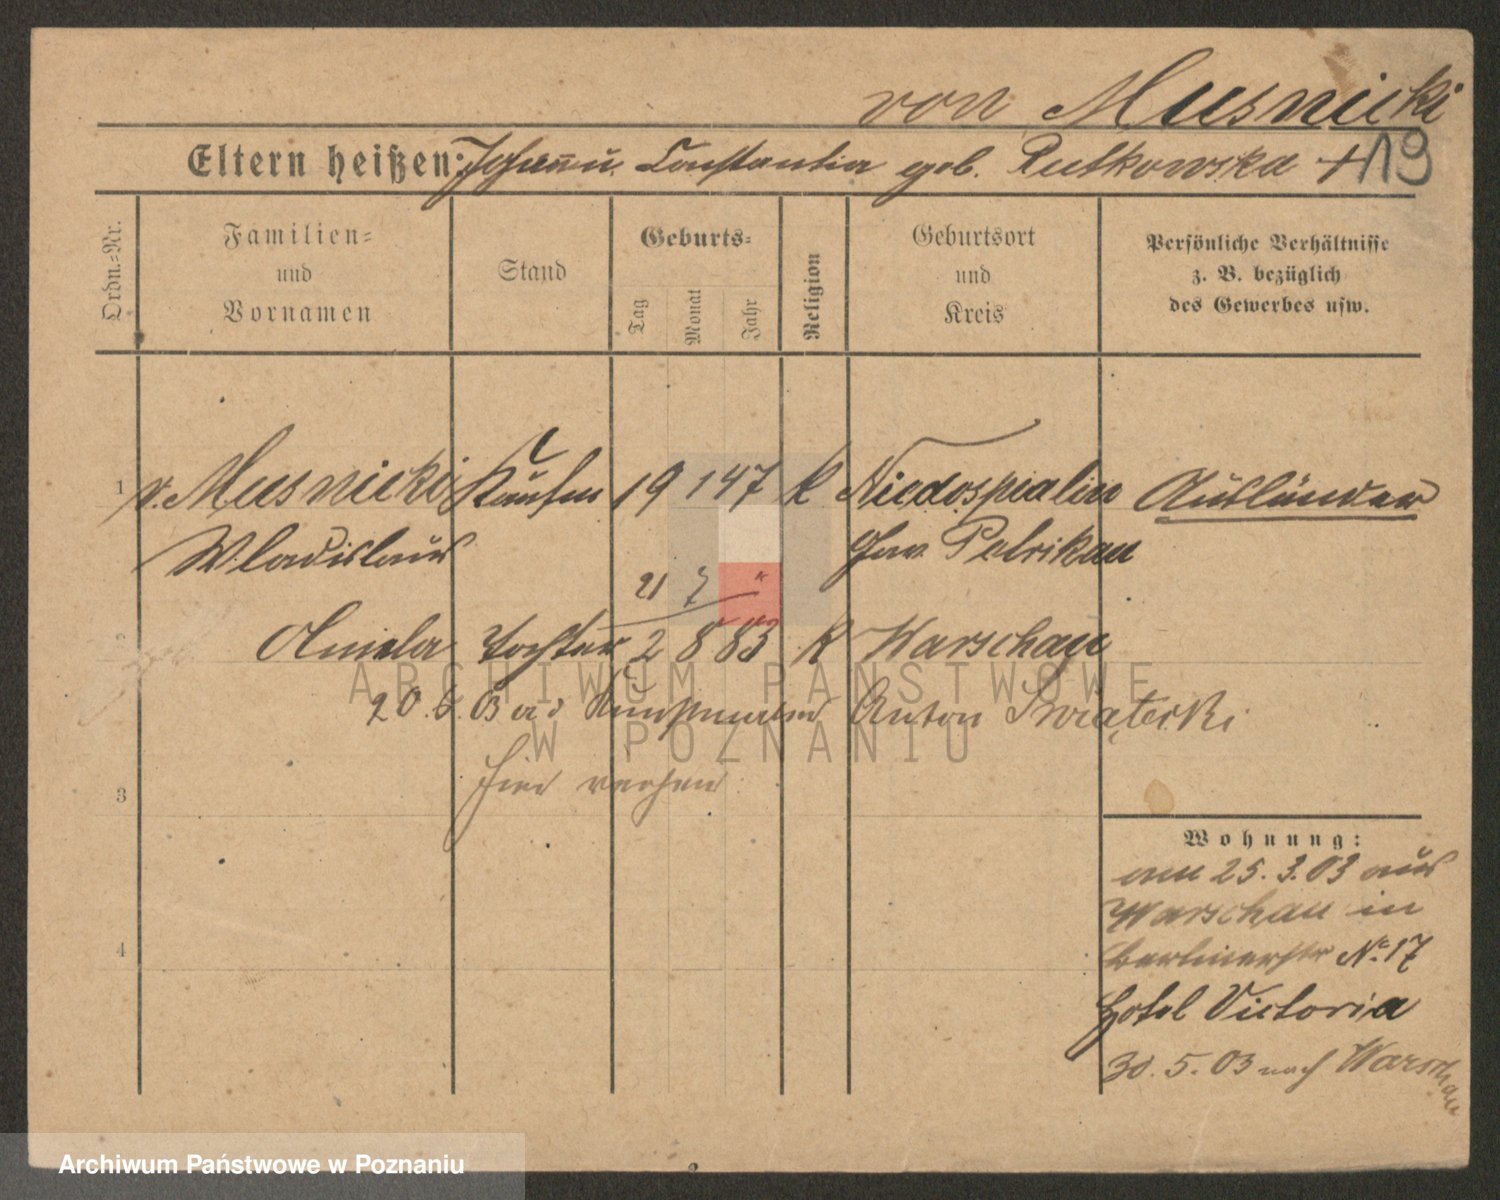 von Musnicki
Eltern heißen: Johann u. Constantia geb. Rutkowska +
19
Ordn.-Nr.
Familien-
und
Vornamen
Stand
Geburts-
Tag
Monat
Jahr
Religion
Geburtsort
und
Kreis
Persönliche Verhältnisse
z. B. bezüglich
des Gewerbes usw.
1 v. Musnicki Kaufm 19 1 47 K Niedospialin Ausländer
Wladislaus Gouv. Petrikau
21 7 "
2 Aniela Tochter 2 8 83 K Warschau
20. 6. 03 Kaufmann Anton Świątecki
hier
3
Wohnung:
am 25. 3. 03 aus
Warschau in
Berlinerstr No 17
Hotel Victoria
4
30. 5. 03 nach Warschau
ARCHIWUM PAŃSTWOWE
W POZNANIU
Archiwum Państwowe w Poznaniu